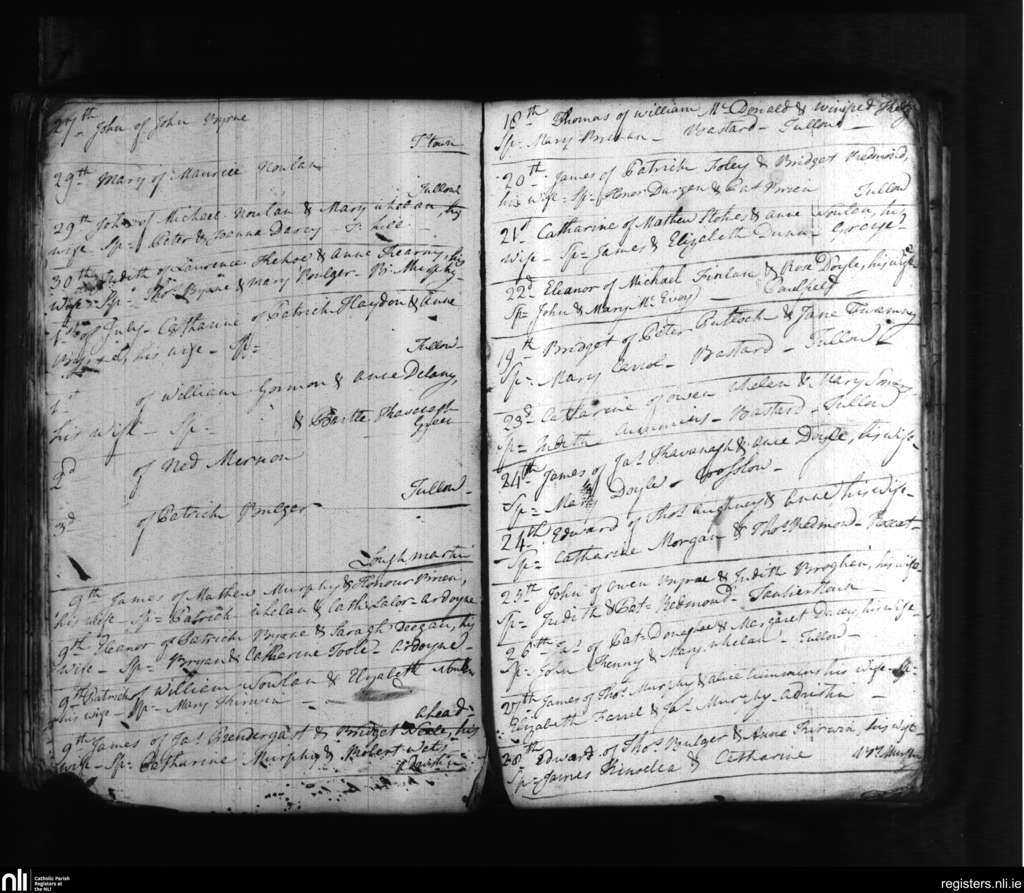 27th John of John Byrne
T:town
29th Mary of Maurice Nowlan
Tullow
29th John of Michael Nowlan & Mary whelan, his
wife Sp= Peter & Joanna Darcy T: hill
30th Judith of Laurence Kehoe & Anne Kearny, his
Wife= Sp= Thos Byrne & Mary Bulger - B: Murphy
1st of July Catharine of Patrick Haydon & Anne
his wife - Sp=
Tullow
1st of William Gormon & anne Delany,
his wife - Sp= & Bartle
Green
2d of Ned Mernon
Tullow
3d of Patrick Bulger
Loughmartin
9th James of Mathew Murphy & Honour Brien,
his wife Sp= Patrick whelan & Cath: Lalor - Ardoyne
9th Eleanor of Patrick Byrne & Saragh Deegan, his
wife - Sp= Bryan & Catharine Toole - Ardoyne
9th Patrick of William Nowlan & Elizabeth
his wife - Sp= Mary Kirwin
ahead
9th James of Jas Prendergast & Bridget his
wife - Sp= Catharine Murphy & Robert
18th Thomas of william McDonald & Winifred
Sp= Mary Brenan - Bastard - Tullow
20th James of Patrick Foley & Bridget Redmond,
his wife - Sp= Honor Durgen & Pat Brien Tullow
21st Catharine of Mathew Stokes & anne Nowlan, his
wife - Sp= James & Elizabeth Dunn -
22d Eleanor of Michael Finlan & Rose Doyle, his wife
Sp= John & Mary McEvoy -
19th Bridget of Peter & Jane Twamny
Sp= Mary Carrol - Bastard - Tullow
23d Catharine of owen whelan & Mary
Sp= Judith Cummins - Bastard - Tullow
24th James of Jas Kavanagh & anne Doyle, his wife
Sp= Mary Doyle - Crosslow -
24th Edward of Thos & anne his wife -
Sp= Catharine Morgan & Thos Redmond -
25th John of Owen Byrne & Judith Broghan, his wife
Sp= Judith & Pat= Redmond -
26th Jas of Pat Donaghoe & Margaret Dacey, his wife
Sp= John Kenny & Mary whelan - Tullow -
27th James of Thos Murphy & alice Cummins his wife - Sp=
Elizabeth Farrel & Jas Murphy
28th Edward of Thos Bulger & Anne Kirwin, his wife
Sp= James Kinselea & Catharine
nli
Catholic Parish
Registers at
the NLI
registers.nli.ie